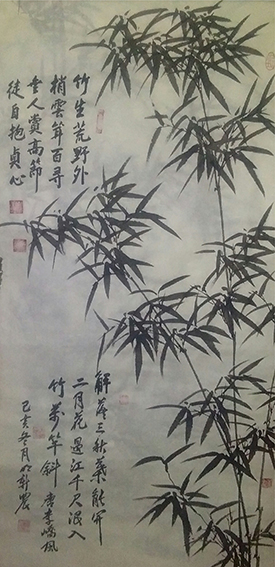 竹生荒野外
梢雲耸百寻
無人賞高節
徒自抱貞心
解落三秋葉能開
二月花過江千尺浪入
竹萬竿斜 唐李嶠風
己亥冬月